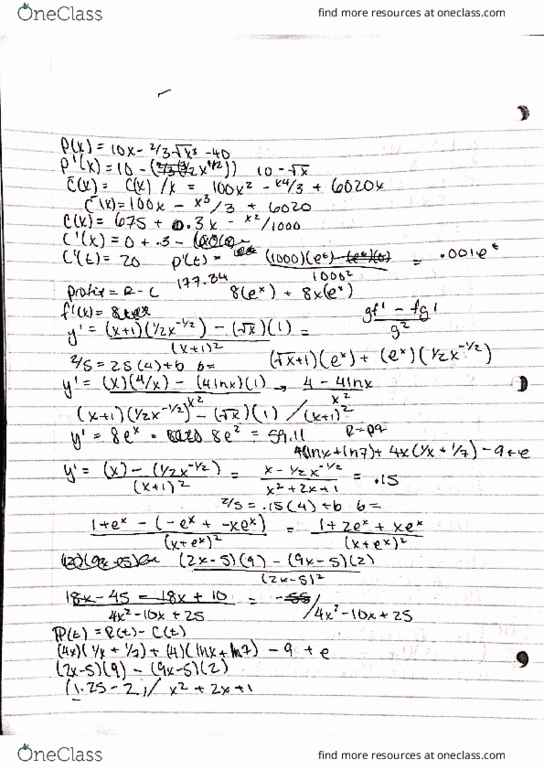 OneClass
find more resources at oneclass.com
P(x) = 10x - 2/3√x³ - 40
P'(x) = 10 - 10 - √x
C̄(x) = C(x) / x = 100x² - x⁴/3 + 6020x
C̄(x) = 100x - x³/3 + 6020
C(x) = 675 + 0.3x - x²/1000
C'(x) = 0 + .3 -
C'(t) = 20 P'(t) = (1000)(eᵗ) - (eᵗ)(0) / 1000² = .001eᵗ
177.34
Profit = R - C 8(eˣ) + 8x(eˣ)
f'(x) = 8
y' = (x+1)(1/2x^-1/2) - (√x)(1) / (x+1)² = gf' - fg' / g²
2/5 = 25(4) + b b= (√x+1)(eˣ) + (eˣ)(1/2x^-1/2)
y' = (x)(4/x) - (4lnx)(1) / x² → 4 - 4lnx / x²
(x+1)(1/2x^-1/2) - (√x)(1) / (x+1)²
y' = 8eˣ = 8e² = 59.11 R=pq
4(lnx+ln7) + 4x(1/x + 1/7) - 9 + e
y' = (x) - (1/2x^-1/2) / (x+1)² = x - 1/2x^-1/2 / x² + 2x + 1 = .15
2/5 = .15(4) + b b=
1+eˣ - (-eˣ + -xeˣ) / (x+eˣ)² = 1 + 2eˣ + xeˣ / (x+eˣ)²
(2x-5)(9) - (9x-5)(2) / (2x-5)²
18x - 45 - 18x + 10 / 4x² - 10x + 25 = -55 / 4x² - 10x + 25
P(t) = R(t) - C(t)
(4x)(1/x + 1/7) + (4)(lnx + ln7) - 9 + e
(2x-5)(9) - (9x-5)(2)
(1.25 - 2) / x² + 2x + 1
OneClass
find more resources at oneclass.com